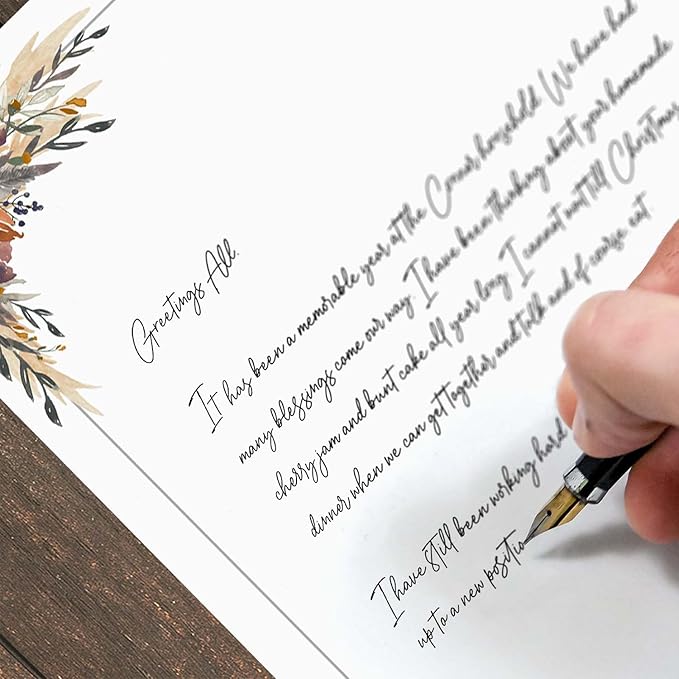 Greetings All.
It has been a memorable year at the Conner household. We have had
many blessings come our way. I have been thinking about your homemade
cherry jam and bunt cake all year long. I cannot wait till Christmas
dinner when we can get together and talk and of course eat.
I have still been working hard
up to a new positio